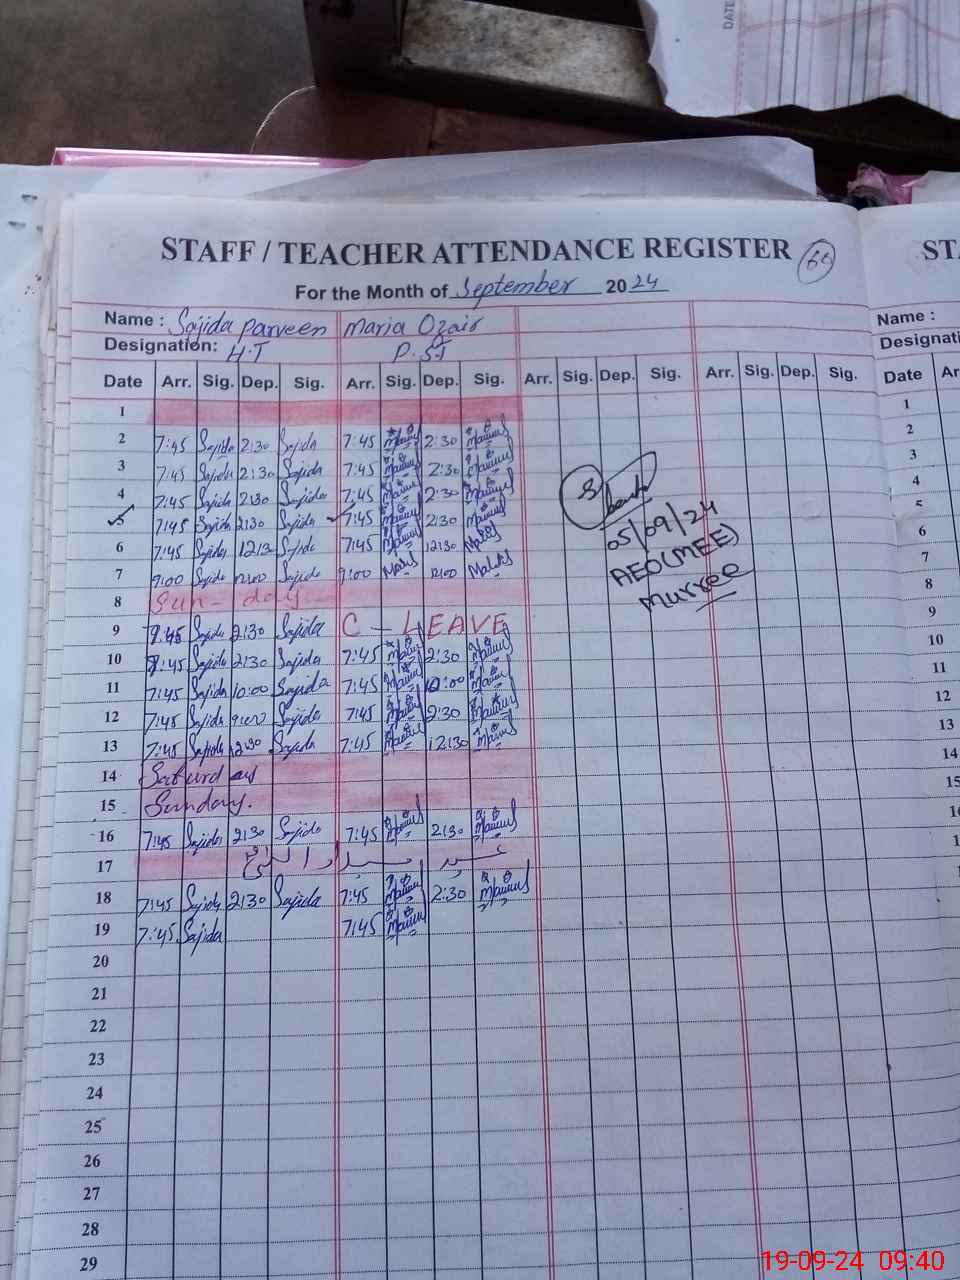 DATE
STAFF / TEACHER ATTENDANCE REGISTER 66
For the Month of September 2024
Name : Sajida parveen Maria Ozair
Designation: H.T P.ST
Date Arr. Sig. Dep. Sig. Arr. Sig. Dep. Sig. Arr. Sig. Dep. Sig. Arr. Sig. Dep. Sig.
1
2 7:45 Sajida 2:30 Sajida 7:45 2:30
3 7:45 Sajida 2:30 Sajida 7:45 2:30
4 7:45 Sajida 2:30 Sajida 7:45 2:30
5 7:45 Sajida 2:30 Sajida 7:45 2:30
6 7:45 Sajida 12:30 Sajida 7:45 12:30
7 9:00 Sajida 12:00 Sajida 9:00 12:00
8 Sun-day
9 7:45 Sajida 2:30 Sajida C-LEAVE
10 7:45 Sajida 2:30 Sajida 7:45 2:30
11 7:45 Sajida 10:00 Sajida 7:45 :00
12 7:45 Sajida Sajida 7:45 2:30
13 7:45 Sajida 12:30 Sajida 7:45 12:30
14 Saturday
15 Sunday.
16 7:45 Sajida 2:30 Sajida 7:45 2:30
17 عید میلاد النبی
18 7:45 Sajida 2:30 Sajida 7:45 2:30
19 7:45 Sajida 7:45
20
21
22
23
24
25
26
27
28
29
05/09/24
AEO(MEE)
Murree
ST
Name :
Designati
Date Ar
1
2
3
4
5
6
7
8
9
10
11
12
13
14
15
19-09-24 09:40